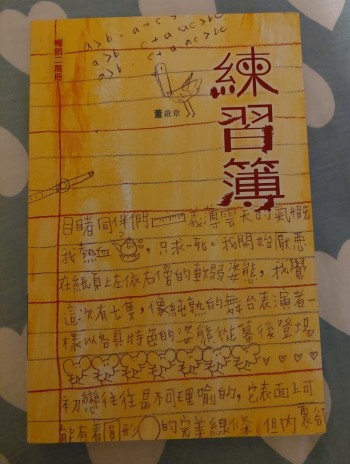 暢銷二萬冊
a>b
董啟章
練習簿
目睹同伴們義薄雲天的氣概
我熱血，只求一死。我開始厭惡
在紙頁上左依右傍的軟弱姿態，我覺
這次有七隻，像純熟的舞台表演者一
樣以各具特色的姿態從幕後登場
初戀往往是不可理喻的，它表面上可
能有着圓形的完美線條，但內裏卻